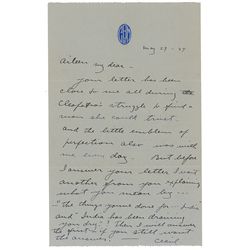 May 29 - 
my dear -
your letter has been
close to me all during
Cleopatra's struggle to find
a man she could trust.
and the little emblem of
perfection also was with
me every day. But before
I answer your letter I want
another from you explaining
what you mean by
"the things you've done for - India
and India has been draining
you dry"? Then I will answer
the first - if you still want
the answer. Cecil